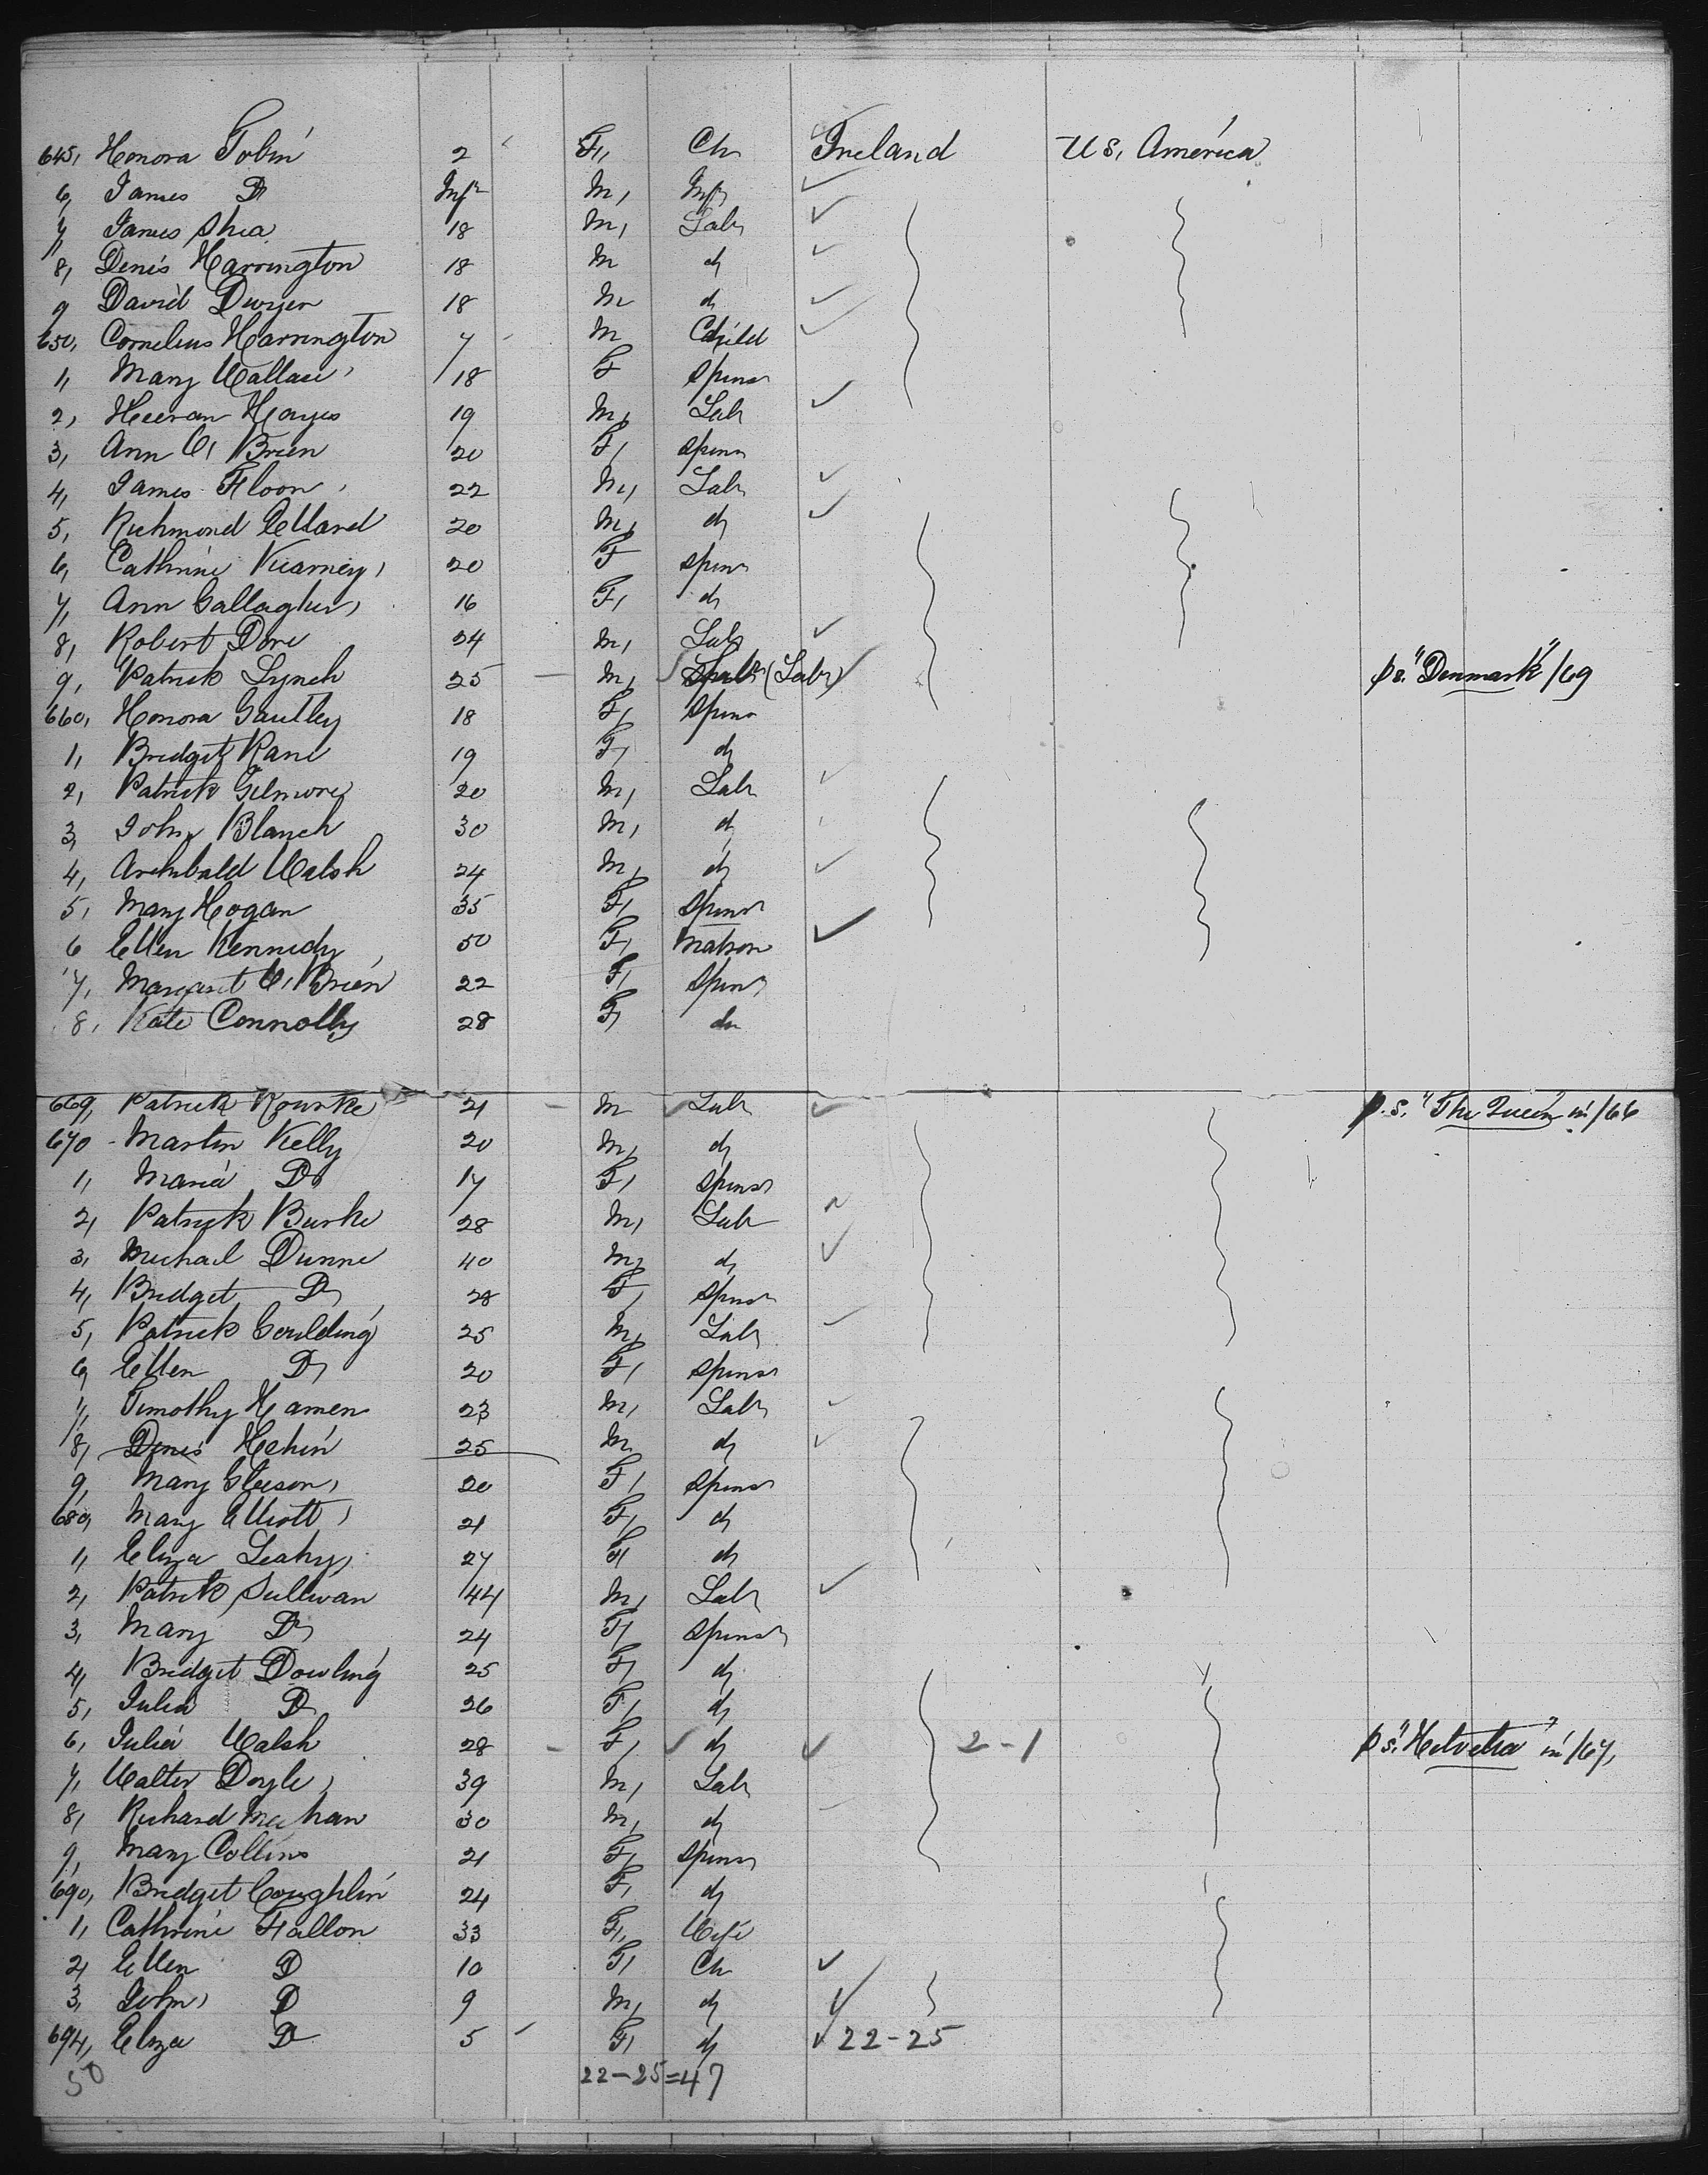 645, Honora Tobin 2 F, Ch Ireland U S, America
6, James D Inft M, Inft
7, James Shea 18 M, Labr
8, Denis Harrington 18 M d
9 David Dwyer 18 M d
650, Cornelius Harrington 7 M Child
1, Mary Wallace 18 F Spinsr
2, Heeran Hayes 19 M, Labr
3, Ann O, Brien 20 F, Spinsr
4, James Floon 22 M, Labr
5, Richmond Ellard 20 M, d
6, Cathrine Kearney, 20 F Spinsr
7, Ann Gallagher, 16 F, d
8, Robert Dore 24 M, Labr
9, Patrick Lynch 25 — M, (Labr) ps. "Denmark" /69
660, Honora Gautley 18 F, Spinsr
1, Bridget Kane 19 F, d
2, Patrick Gilmore 20 M, Labr
3, John Blanch 30 M, d
4, Archibald Walsh 24 M, d
5, Mary Hogan 35 F, Spinsr
6 Ellen Kennedy 50 F, Matron
7, Margaret O, Brien 22 F, Spinsr
8, Kate Connolly 28 F, do
669, Patrick Rourke 21 — M Labr p.s. "The Queen" in /66
670 - Martin Kelly 20 M, d
1, Maria D 17 F, Spinsr
2, Patrick Burke 28 M, Labr
3, Michael Dunne 40 M, d
4, Bridget D 28 F, Spinsr
5, Patrick Goulding 25 M, Labr
6, Ellen D 20 F, Spinsr
7, Timothy Hamen 23 M, Labr
8, Denis Hehin 25 M, d
9, Mary Gleeson, 20 F, Spinsr
680, Mary Elliott, 21 F, d
1, Eliza Leahy, 27 F, d
2, Patrick Sullivan 44 M, Labr
3, Mary D 24 F, Spinsr
4, Bridget Dowling 25 F, d
5, Julia D 26 F, d
6, Julia Walsh 28 — F, d 2-1 ps. "Helvetia" in /67,
7, Walter Doyle, 39 M, Labr
8, Richard Meehan 30 M, d
9, Mary Collins 21 F, Spinsr
690, Bridget Coughlin 24 F, d
1, Cathrine Fallon 33 F, Wife
2, Ellen D 10 F, Ch
3, John, D 9 M, d
694, Eliza D 5 F, d 22-25
50 22-25=47